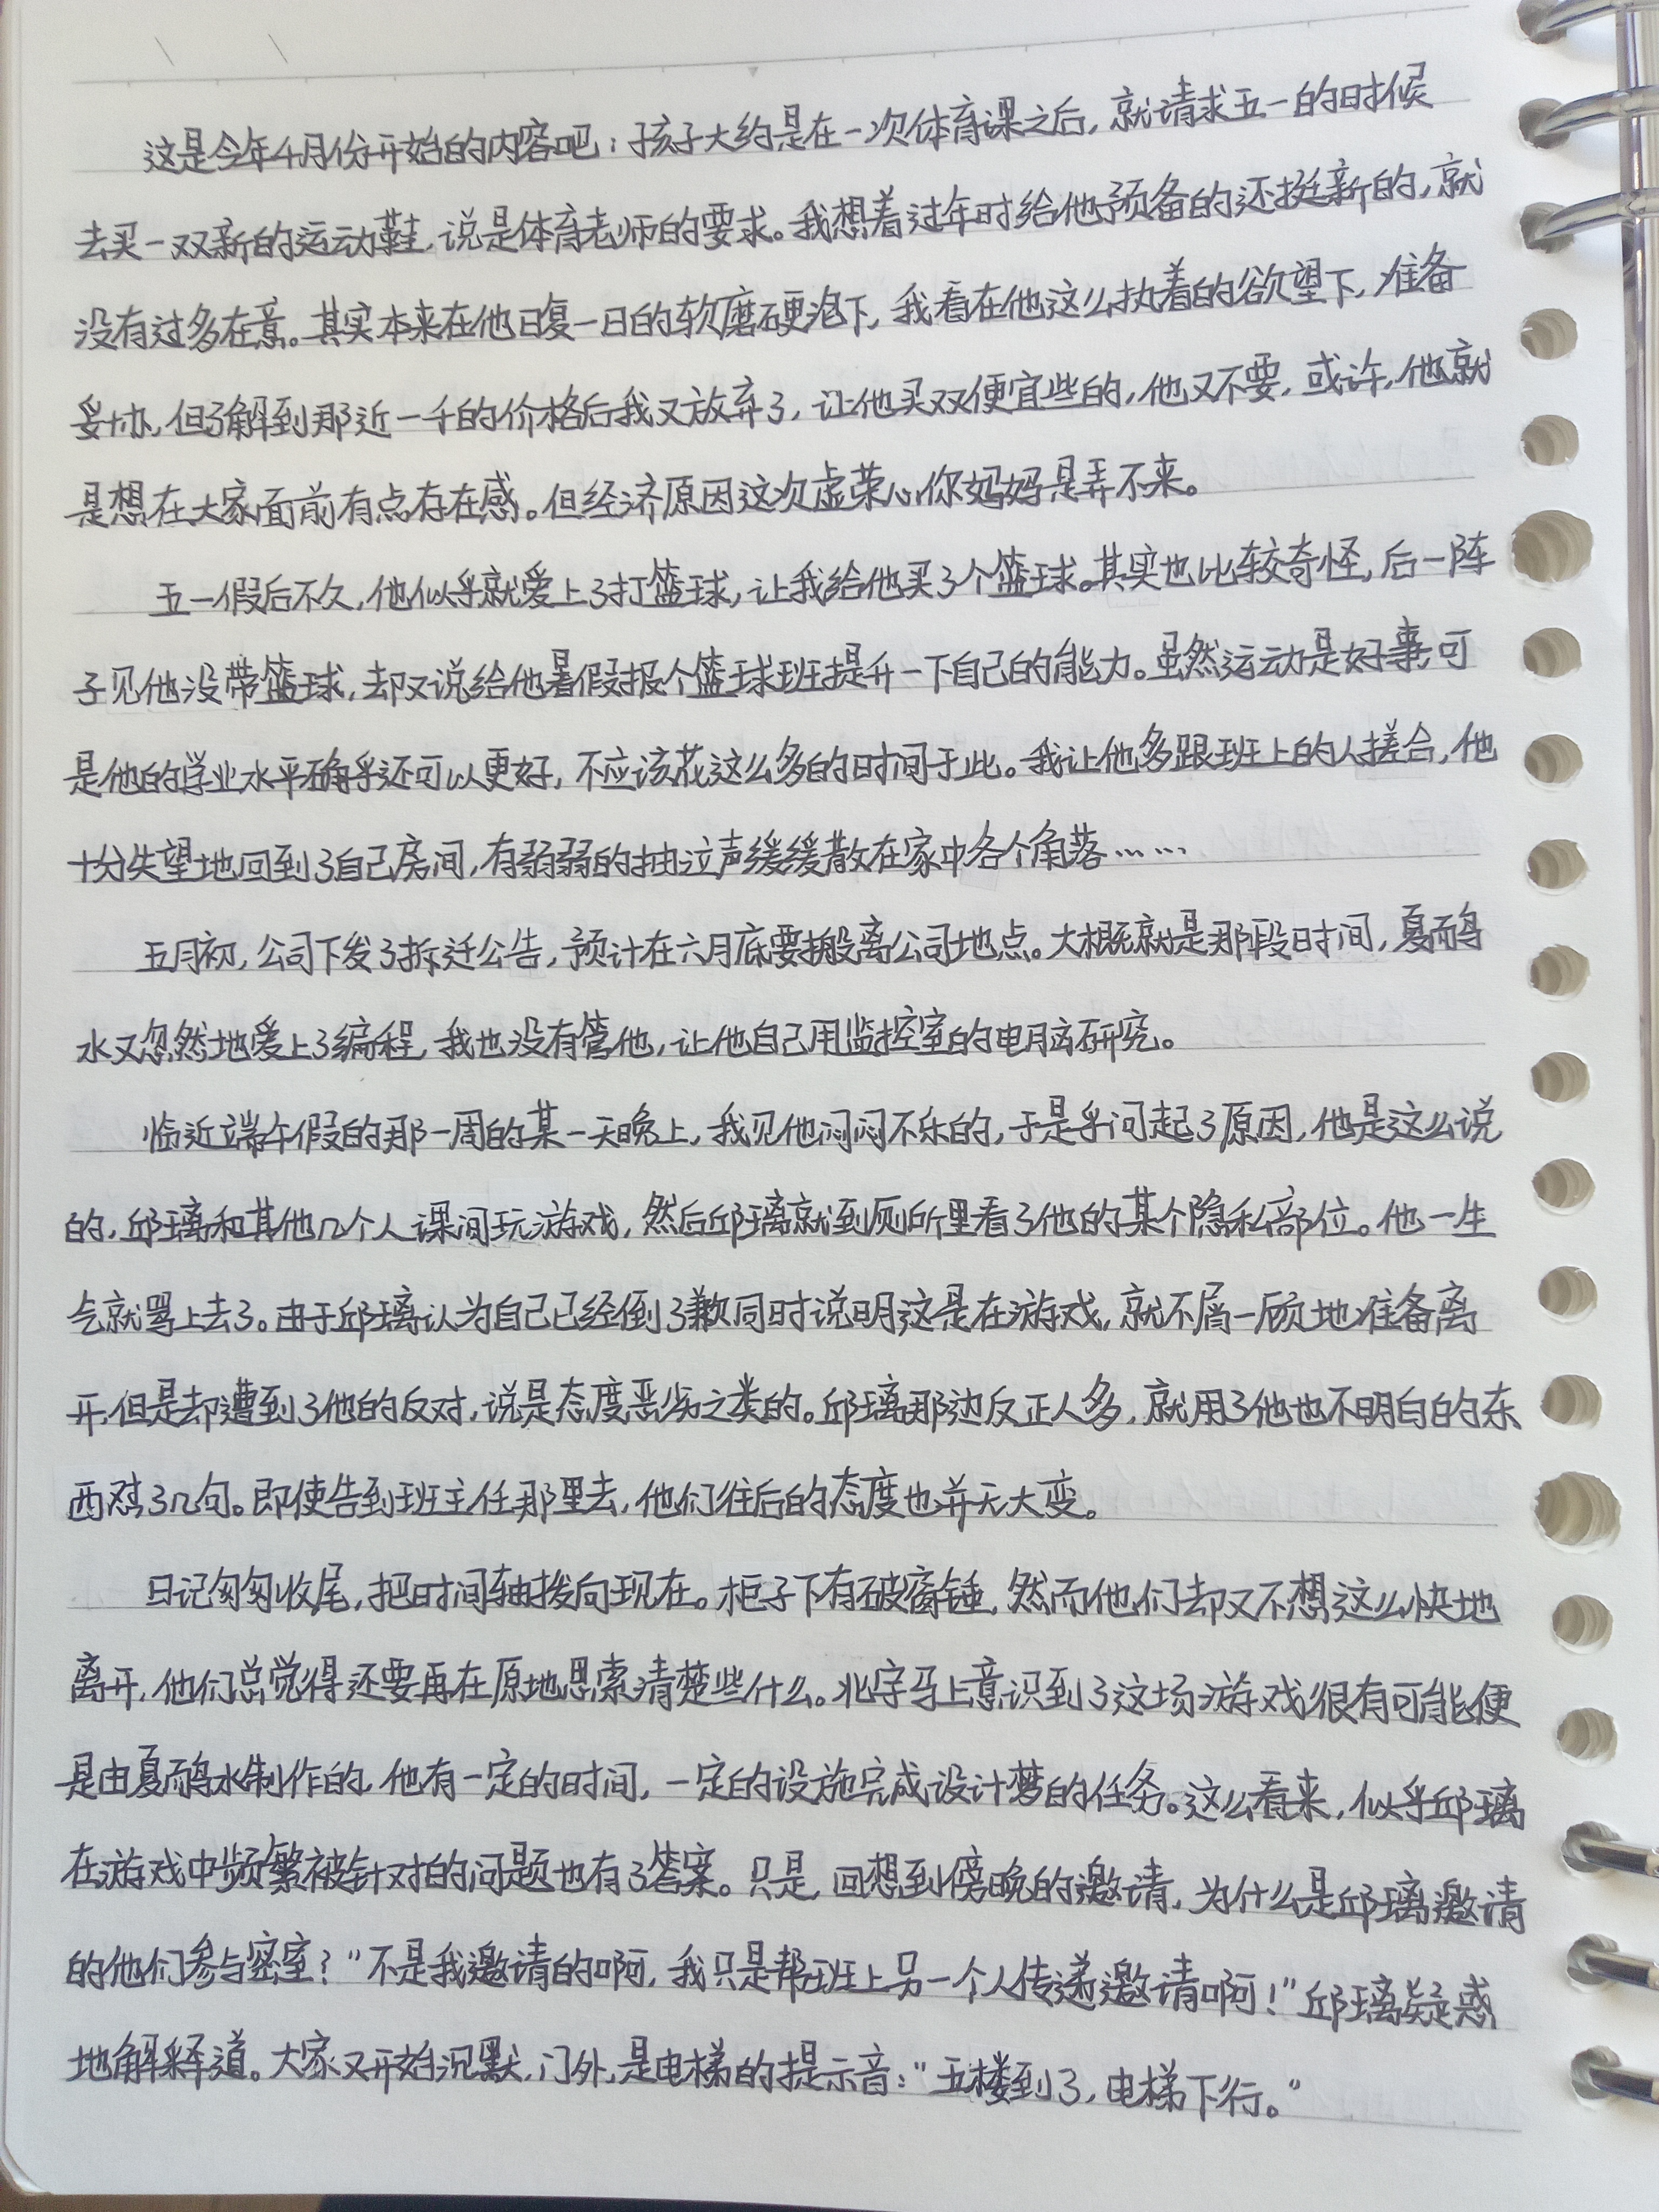 这是今年4月份开始的内容吧：孩子大约是在一次体育课之后，就请求五一的时候
去买一双新的运动鞋，说是体育老师的要求。我想着过年时给他预备的还挺新的，就
没有过多在意。其实本来在他日复一日的软磨硬泡下，我看在他这么执着的欲望下，准备
妥协，但了解到那近一千的价格后我又放弃了，让他买双便宜些的，他又不要，或许，他就
是想在大家面前有点存在感。但经济原因这次虚荣心，你妈妈是弄不来。
五一假后不久，他似乎就爱上了打篮球，让我给他买了个篮球。其实也比较奇怪，后一阵
子见他没带篮球，却又说给他暑假报个篮球班提升一下自己的能力。虽然运动是好事，可
是他的学业水平确乎还可以更好，不应该花这么多的时间于此。我让他多跟班上的人搓合，他
十分失望地回到了自己房间，有弱弱的抽泣声缓缓散在家中各个角落……
五月初，公司下发了拆迁公告，预计在六月底要搬离公司地点。大概就是那段时间，夏雨
水又忽然地爱上了编程，我也没有管他，让他自己用监控室的电脑研究。
临近端午假的那一周的某一天晚上，我见他闷闷不乐的，于是乎问起了原因，他是这么说
的，邱璃和其他几个人课间玩游戏，然后邱璃就到厕所里看了他的某个隐私部位。他一生
气就骂上去了。由于邱璃认为自己已经倒了歉同时说明这是在游戏，就不屑一顾地准备离
开，但是却遭到了他的反对，说是态度恶劣之类的。邱璃那边反正人多，就用了他也不明白的东
西怼了几句。即使告到班主任那里去，他们往后的态度也并无大变。
日记匆匆收尾，把时间轴拨向现在。柜子下有破窗锤，然而他们却又不想这么快地
离开，他们总觉得还要再在原地思索清楚些什么。北字马上意识到了这场游戏很有可能便
是由夏雨水制作的，他有一定的时间，一定的设施完成设计梦的任务。这么看来，似乎邱璃
在游戏中频繁被针对的问题也有了答案。只是，回想到傍晚的邀请，为什么是邱璃邀请
的他们参与密室？“不是我邀请的啊，我只是帮班上另一个人传递邀请啊！”邱璃疑惑
地解释道。大家又开始沉默，门外，是电梯的提示音：“五楼到了，电梯下行。”